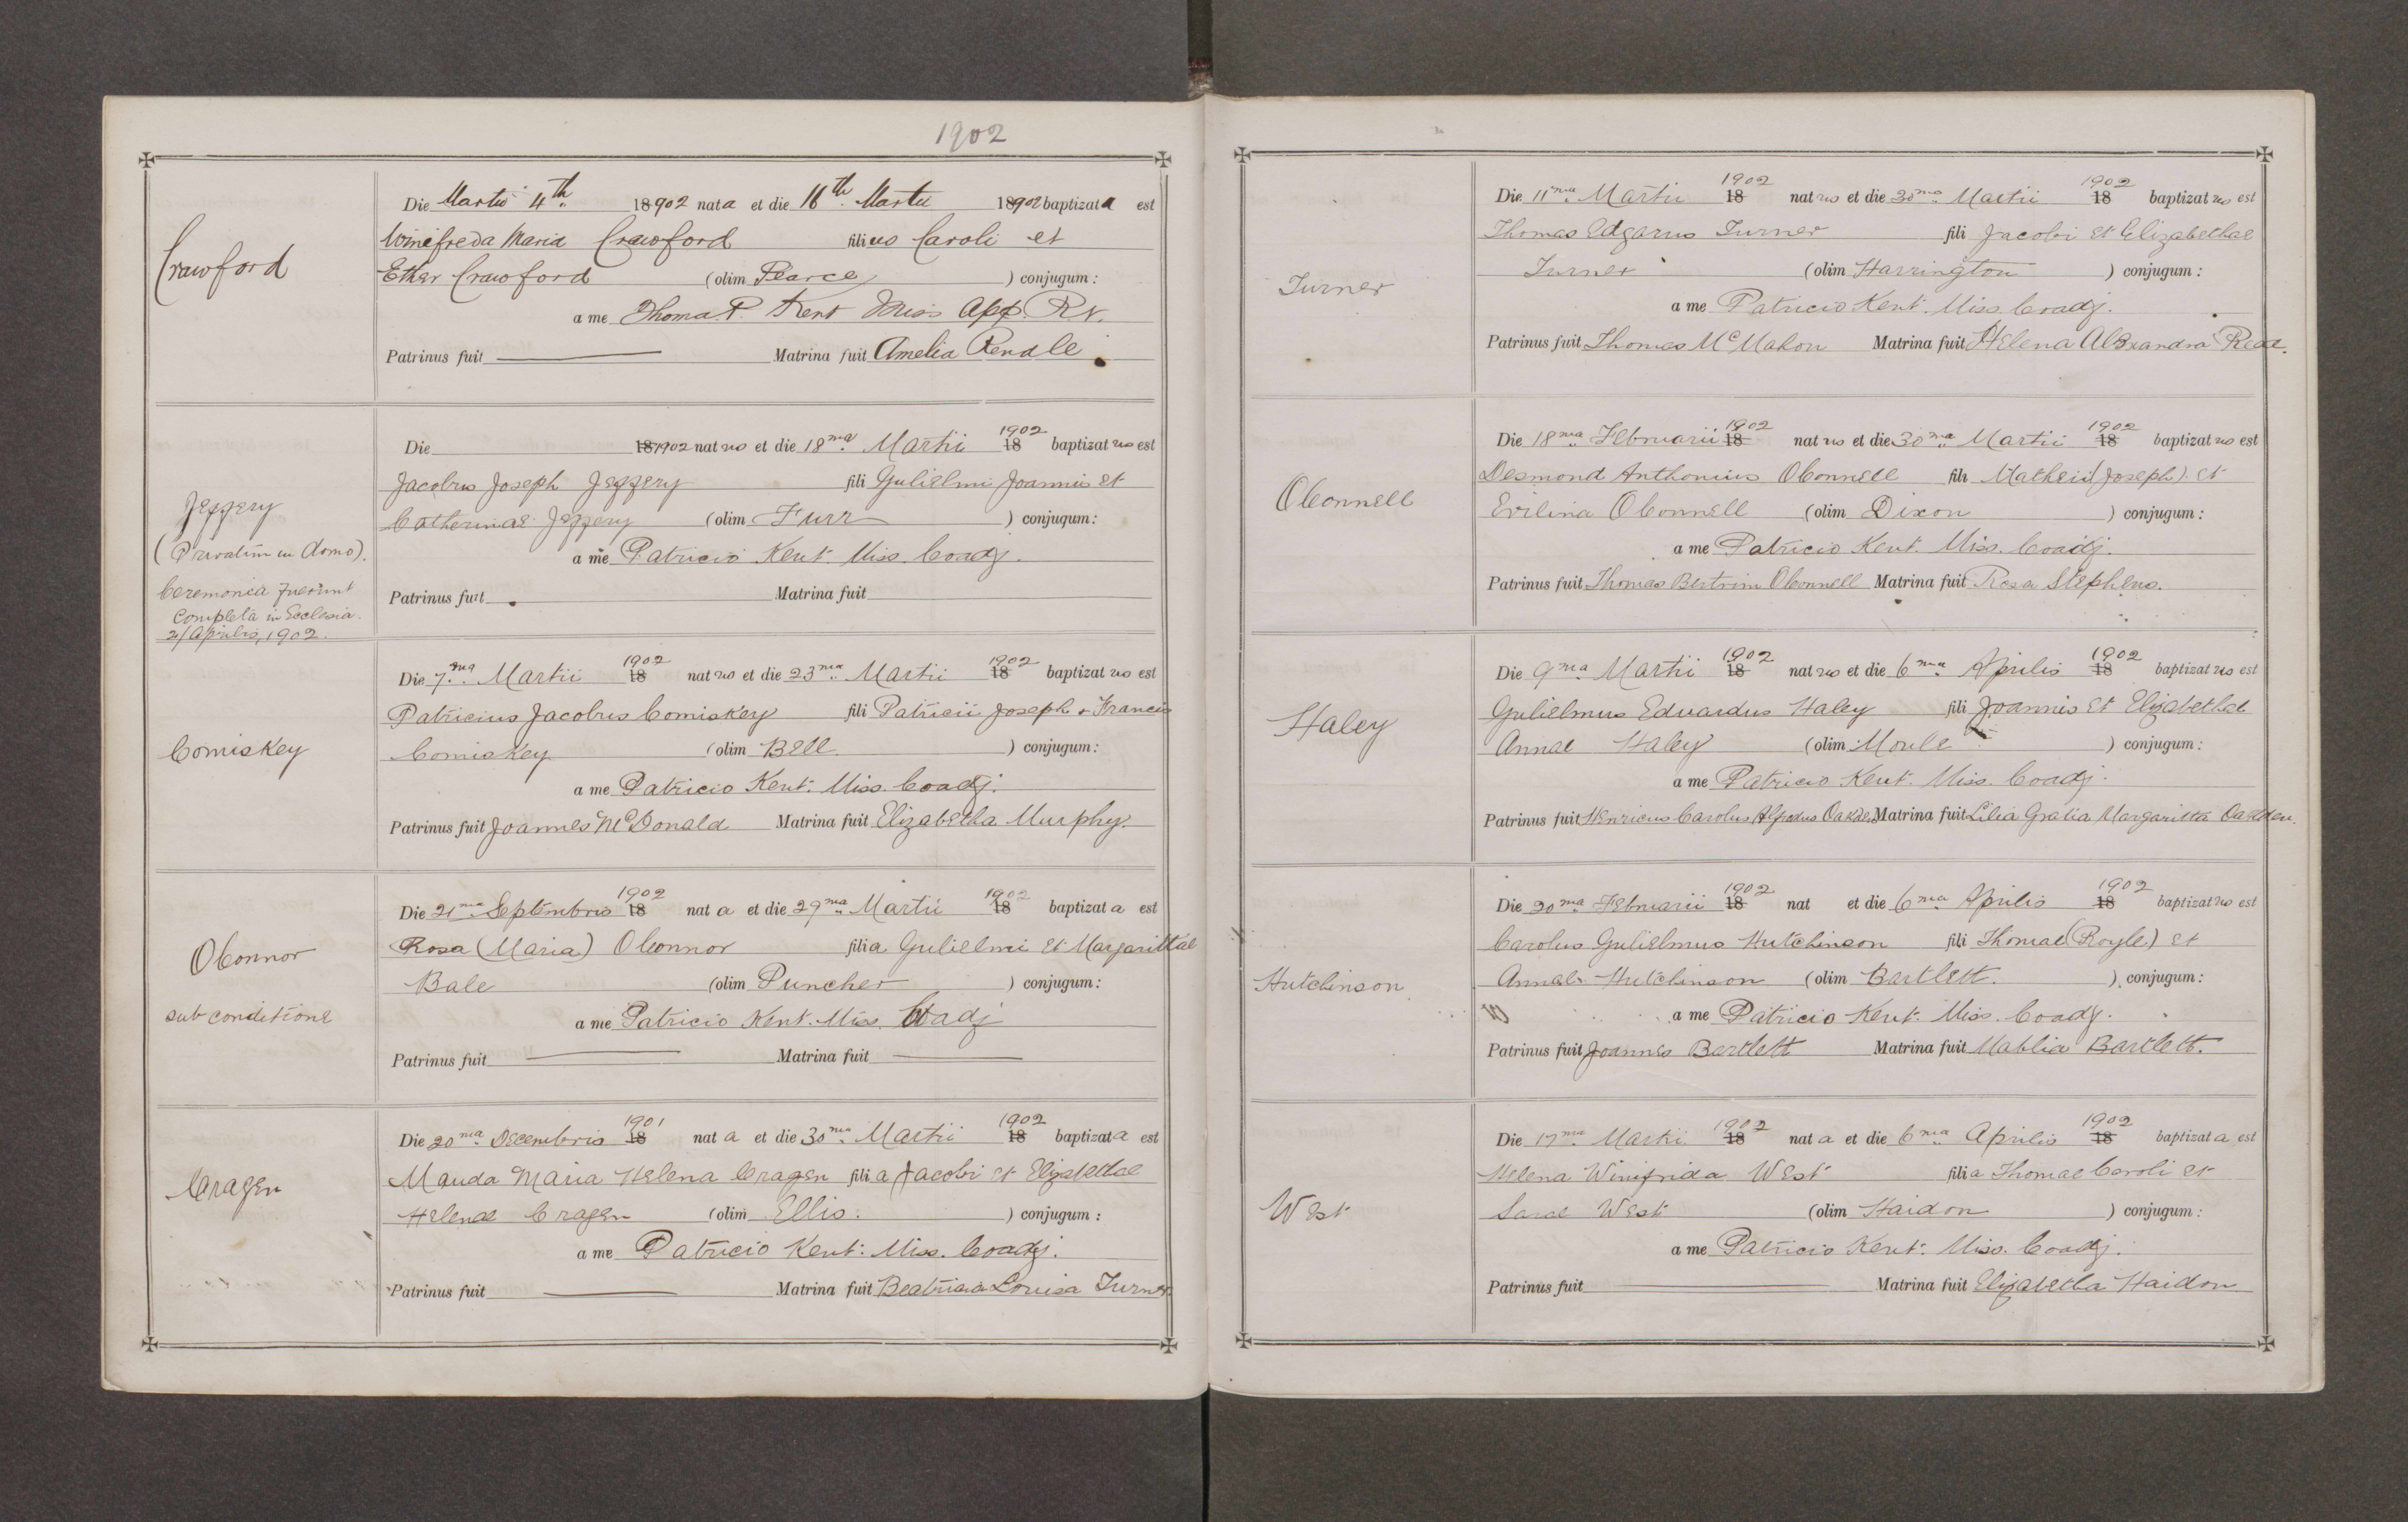 1902
Crawford
Die Martii 4th 18902 nata et die 16th Martii 18902 baptizata est
Winefreda Maria Crawford filius Caroli et
Ether Crawford (olim Pearce) conjugum:
a me Thoma P Kent Miss App. Rv.
Patrinus fuit Matrina fuit Amelia Rendle
Jeffery
(Privatim in domo).
Ceremonia fuerunt
Completa in Ecclesia.
21 Aprilis, 1902.
Die 18 1902 natus et die 18ma Martii 18 1902 baptizatus est
Jacobus Joseph Jeffery fili Gulielmi Joannis et
Catherinae Jeffery (olim Furr) conjugum:
a me Patricio Kent. Miss. Coadj.
Patrinus fuit Matrina fuit
Comiskey
Die 7ma Martii 18 1902 natus et die 23ma Martii 18 1902 baptizatus est
Patricius Jacobus Comiskey fili Patricii Joseph & Francis
Comiskey (olim Bell) conjugum:
a me Patricio Kent. Miss. Coadj.
Patrinus fuit Joannes McDonald Matrina fuit Elizabetha Murphy.
OConnor
sub conditione
Die 21ma Septembris 18 1902 nata et die 29ma Martii 18 1902 baptizata est
Rosa (Maria) OConnor filia Gulielmi et Margarittae
Bale (olim Puncher) conjugum:
a me Patricio Kent. Miss. Coadj
Patrinus fuit Matrina fuit
Cragen
Die 20ma Decembris 18 1901 nata et die 30ma Martii 18 1902 baptizata est
Mauda Maria Helena Cragen filia Jacobi et Elizabethae
Helenae Cragen (olim Ellis.) conjugum:
a me Patricio Kent: Miss. Coadj.
Patrinus fuit Matrina fuit Beatricia Louisa Turner
Turner
Die 11ma Martii 18 1902 natus et die 30ma Martii 18 1902 baptizatus est
Thomas Edgarus Turner fili Jacobi et Elizabethae
Turner (olim Harrington) conjugum:
a me Patricio Kent. Miss. Coadj.
Patrinus fuit Thomas McMahon Matrina fuit Helena Alexandra Read.
OConnell
Die 18ma Februarii 18 1902 natus et die 30ma Martii 18 1902 baptizatus est
Desmond Anthonius OConnell fili Matheii (Joseph) et
Evilina OConnell (olim Dixon) conjugum:
a me Patricio Kent. Miss. Coadj.
Patrinus fuit Thomas Bertrim OConnell Matrina fuit Rosa Stephens.
Haley
Die 9ma Martii 18 1902 natus et die 6ma Aprilis 18 1902 baptizatus est
Gulielmus Eduardus Haley fili Joannis et Elizabethae
Annae Haley (olim Moule) conjugum:
a me Patricio Kent. Miss. Coadj.
Patrinus fuit Henricus Carolus Alfredus Oakden Matrina fuit Lilia Gratia Margaritta Oakden.
Hutchinson
Die 20ma Februarii 18 1902 nat et die 6ma Aprilis 18 1902 baptizatus est
Carolus Gulielmus Hutchinson fili Thomae (Royle) et
Annae Hutchinson (olim Bartlett.) conjugum:
a me Patricio Kent. Miss. Coadj.
Patrinus fuit Joannes Bartlett Matrina fuit Mablia Bartlett.
West
Die 17ma Martii 18 1902 nata et die 6ma Aprilis 18 1902 baptizata est
Helena Winifrida West filia Thomae Caroli et
Sarae West (olim Haidon) conjugum:
a me Patricio Kent. Miss. Coadj.
Patrinus fuit Matrina fuit Elizabetha Haidon